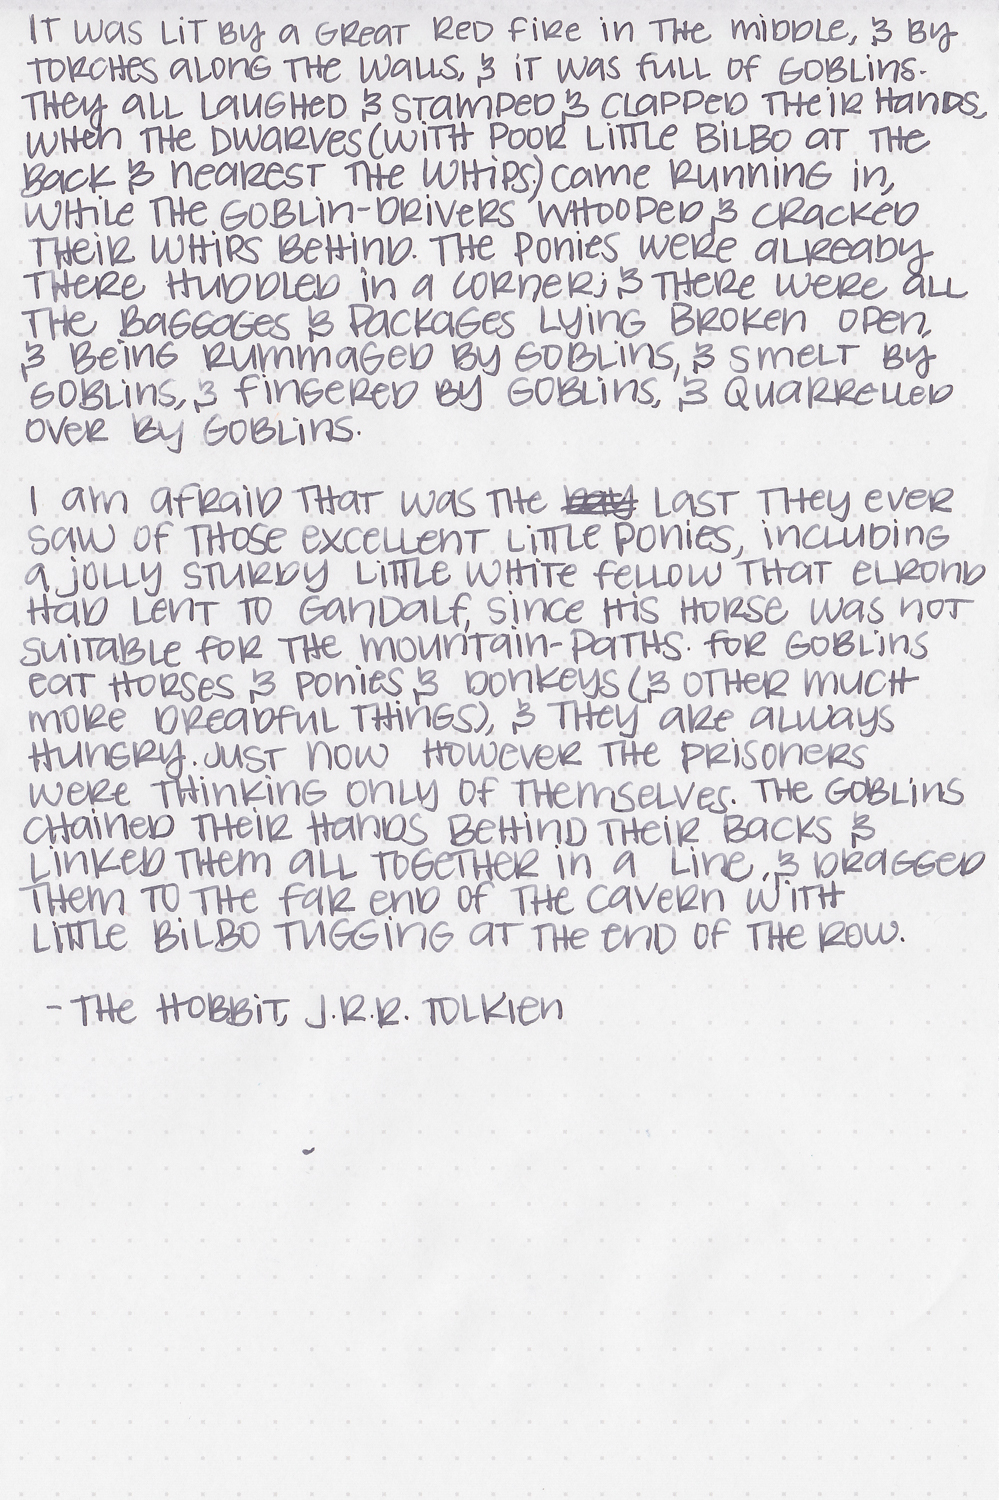 It was lit by a great red fire in the middle, & by
torches along the walls, & it was full of goblins.
They all laughed & stamped & clapped their hands,
when the dwarves (with poor little Bilbo at the
back & nearest the whips) came running in,
while the goblin-drivers whooped & cracked
their whips behind. The ponies were already
there huddled in a corner; & there were all
the baggages & packages lying broken open,
& being rummaged by goblins, & smelt by
goblins, & fingered by goblins, & quarrelled
over by goblins.
I am afraid that was the last they ever
saw of those excellent little ponies, including
a jolly sturdy little white fellow that Elrond
had lent to Gandalf, since his horse was not
suitable for the mountain-paths. For goblins
eat horses & ponies & donkeys (& other much
more dreadful things), & they are always
hungry. Just now however the prisoners
were thinking only of themselves. The goblins
chained their hands behind their backs &
linked them all together in a line, & dragged
them to the far end of the cavern with
little Bilbo tugging at the end of the row.
- The Hobbit, J.R.R. Tolkien